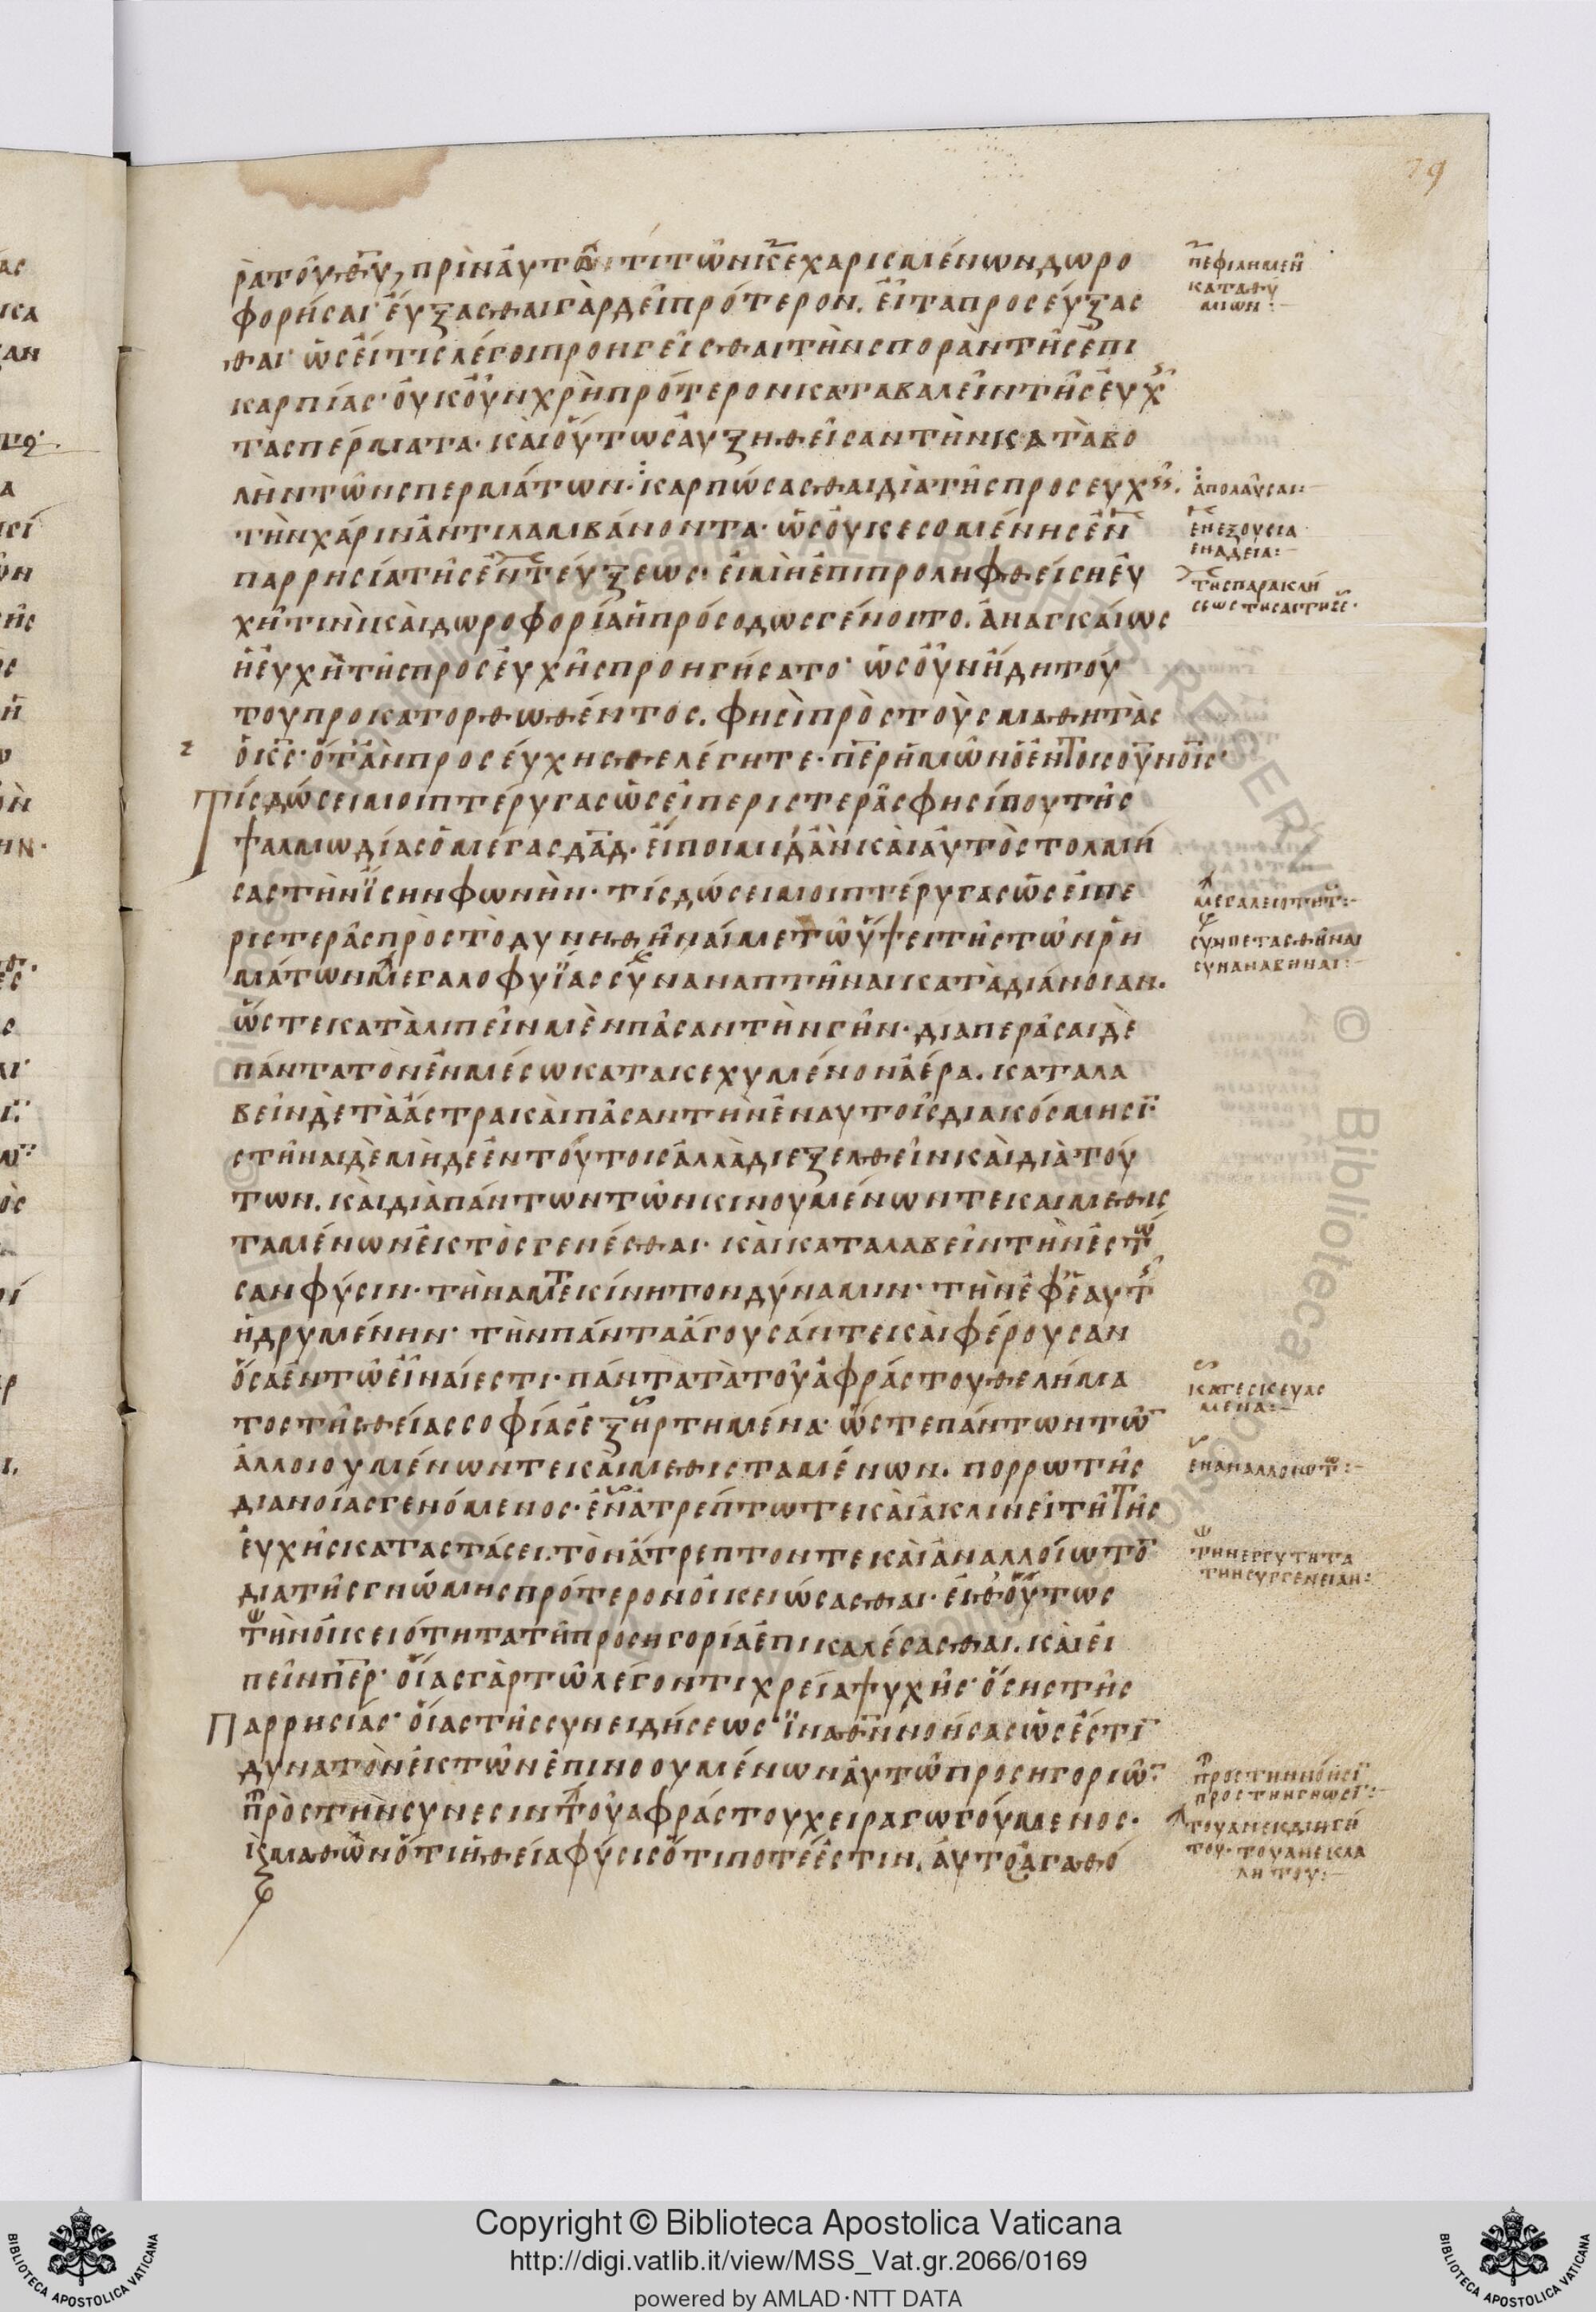 79
ρὰ τοῦ θ̅υ̅, πρὶν ἀυτῶ τι τῶν κεχαρισμένων δωρο
φορῆσαι· ἔυξασθαι γὰρ δεῖ πρότερον. ἔιτα προσεύξας
θαι· ὡς ἔι τις λέγοι προηγεῖσθαι τὴν σπορὰν τῆς ἐπι
καρπίας· ὀυκοῦν χρὴ πρότερον καταβαλεῖν τῆς ἐυχῆς
τὰ σπέρματα· καὶ ὅυτως ἀυξηθεῖσαν τὴν καταβο
λὴν τῶν σπερμάτων· καρπώσασθαι διὰ τῆς προσευχῆς.
τὴν χάριν ἀντιλαμβάνοντα· ὡς ὀυκ εσομένης ἐν
παρρησία τῆς ἐντεύξεως· ἐι μὴ ἐπι προληφθείση ἐυ
χῆ τινὶ καὶ δωροφορία ἡ πρόσοδως γένοιτο. ἀναγκαίως
ἡ ἐυχὴ τῆς προσἐυχῆς προηγήσατο· ὡς ὀῦν ἤδη τού
του προκατορθωθέντος. φησὶ πρὸς τοὺς μαθητὰς
ὁ κ̅ς̅· ὅταν προσέυχησθε λέγητε· π̅ε̅ρ̅ ἡμῶν ὁ ἐν τοῖς ὀυ̅νοῖς·
Τίς δώσει μοι πτέρυγας ὡσεὶ περιστερᾶς φησί που τῆς
ψαλμωδίας ὁ μέγας δ̅α̅δ̅· ἔιποιμι δ' ἂν καὶ ἀυτὸς τολμή
σας τὴν ἴσην φωνὴν· τίς δώσει μοι πτέρυγας ὡσεὶ πε
ριστερᾶς πρὸς τὸ δυνηθῆναί με τῶ ὕψει τῆς τῶν ρη
μάτων μεγαλοφυΐας συναναπτῆναι κατὰ διάνοιαν.
ὥστε κατὰλιπεῖν μὲν πᾶσαν τὴν γῆν· διαπερᾶσαι δὲ
πάντα τὸν ἐν μέσω κατακεχυμένον ἀέρα. καταλα
βεῖν δὲ τὰ ἄστρα καὶ πᾶσαν τὴν ἐν αυτοῖς διακόσμησι·
στῆναι δὲ μὴδε ἐν τούτοις ἀλλὰ διεξελθεῖν καὶ διὰ τού
των. καὶ διὰ πάντων τῶν κινουμένων τὲ και μεθισ
ταμένων ἐκτὸς γενέσθαι· καὶ καταλαβεῖν τὴν ἑστῶ
σαν φύσιν· τὴν αμετεκίνητον δύναμιν· τὴν ἐφ' ἑαυτῆς
ἡδρυμένην· τὴν πάντα ἄγουσάν τε καὶ φέρουσαν
ὅσα ἐν τῶ ἐῖναί εστι· πάντα τὰ τοῦ ἀφράστου θελήμα
τος τῆς θείας σοφίας ἐξηρτημένα· ὥστε πάντων τῶν
ἀλλοιουμένων τε καὶ μεθισταμένων. πορρω τῆς
διανοίας γενόμενος· ἐν ἀτρέπτω τε καὶ ἀκλινεῖ τῆ τῆς
ἐυχῆς καταστάσει. τὸν ἄτρεπτον τε καὶ ἀναλλοίωτον
δια τῆς γνώμης πρότερον ὀικειώσασθαι· ἐιθ' ὅυτως
τὴν ὀικειότητα τῆ προσηγορία ἐπικαλέσασθαι. καὶ ἐι
πεῖν π̅ε̅ρ̅· ὅιας γὰρ τῶ λέγοντι χρεία ψυχῆς· ὅσης τῆς
Παρρησίας· ὅιας τῆς συνειδήσεως· ἵνα θ̅ν̅ νοήσας ὡς ἐστὶ
δυνατὸν ἐκ τῶν ἐπινοουμένων ἀυτῶ προσηγοριῶν·
πρὸς τὴν συνεσιν τοῦ αφράστου χειραγωγούμενος·
κ μαθὼν ὅτι ἡ θεία φύσις ὅτι ποτέ ἐστιν. ἀυτο ἀγαθό
πεφιλημέν
καταθυ
μιων:
ἀπολαῦσαι
ἐν εξουσία
εν αδεια:
τῆς παρακλή
σεως τῆς αιτησε·
μεγαλειοτητ:
συνπετασθῆναι
συναναβηναι:
κατεσκευας
μενα:
εν αναλλοιωτω:
τὴν εγγυτητα
την συγγενειαν:
πρὸς την νόησι
προς την γνωσι:
του ανεκδιηγή
του· του ανεκλα
λήτου:
Copyright © Biblioteca Apostolica Vaticana
http://digi.vatlib.it/view/MSS_Vat.gr.2066/0169
powered by AMLAD·NTT DATA
BIBLIOTECA APOSTOLICA VATICANA
BIBLIOTECA APOSTOLICA VATICANA